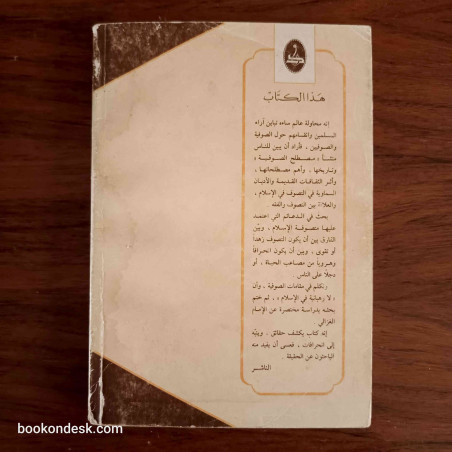 هَذا الكتَابُ
إنه محاولة عالم ساءه تباين آراء
المسلمين وانقسامهم حول الصوفية
والصوفيين ، فأراد أن يبين للناس
منشأ « مصطلح الصوفية »
وتاريخها ، وأهم مصطلحاتها ،
وأثر الثقافات القديمة والأديان
السماوية في التصوف في الإسلام ،
والعلاقة بين التصوف والفقه .
بحث في الدعائم التي اعتمد
عليها متصوفة الإسلام ، وبيّن
الفارق بين أن يكون التصوف زهداً
أو تقوى ، وبين أن يكون انحرافاً
وهروباً من مصاعب الحياة ، أو
دجلاً على الناس .
وتكلم في مقامات الصوفية ، وأن
« لا رهبانية في الإسلام » ، ثم ختم
بحثه بدراسة مختصرة عن الإمام
الغزالي
إنه كتاب يكشف حقائق . وينبّه
إلى انحرافات ، فعسى أن يفيد منه
الباحثون عن الحقيقة .
الناشر
bookondesk.com